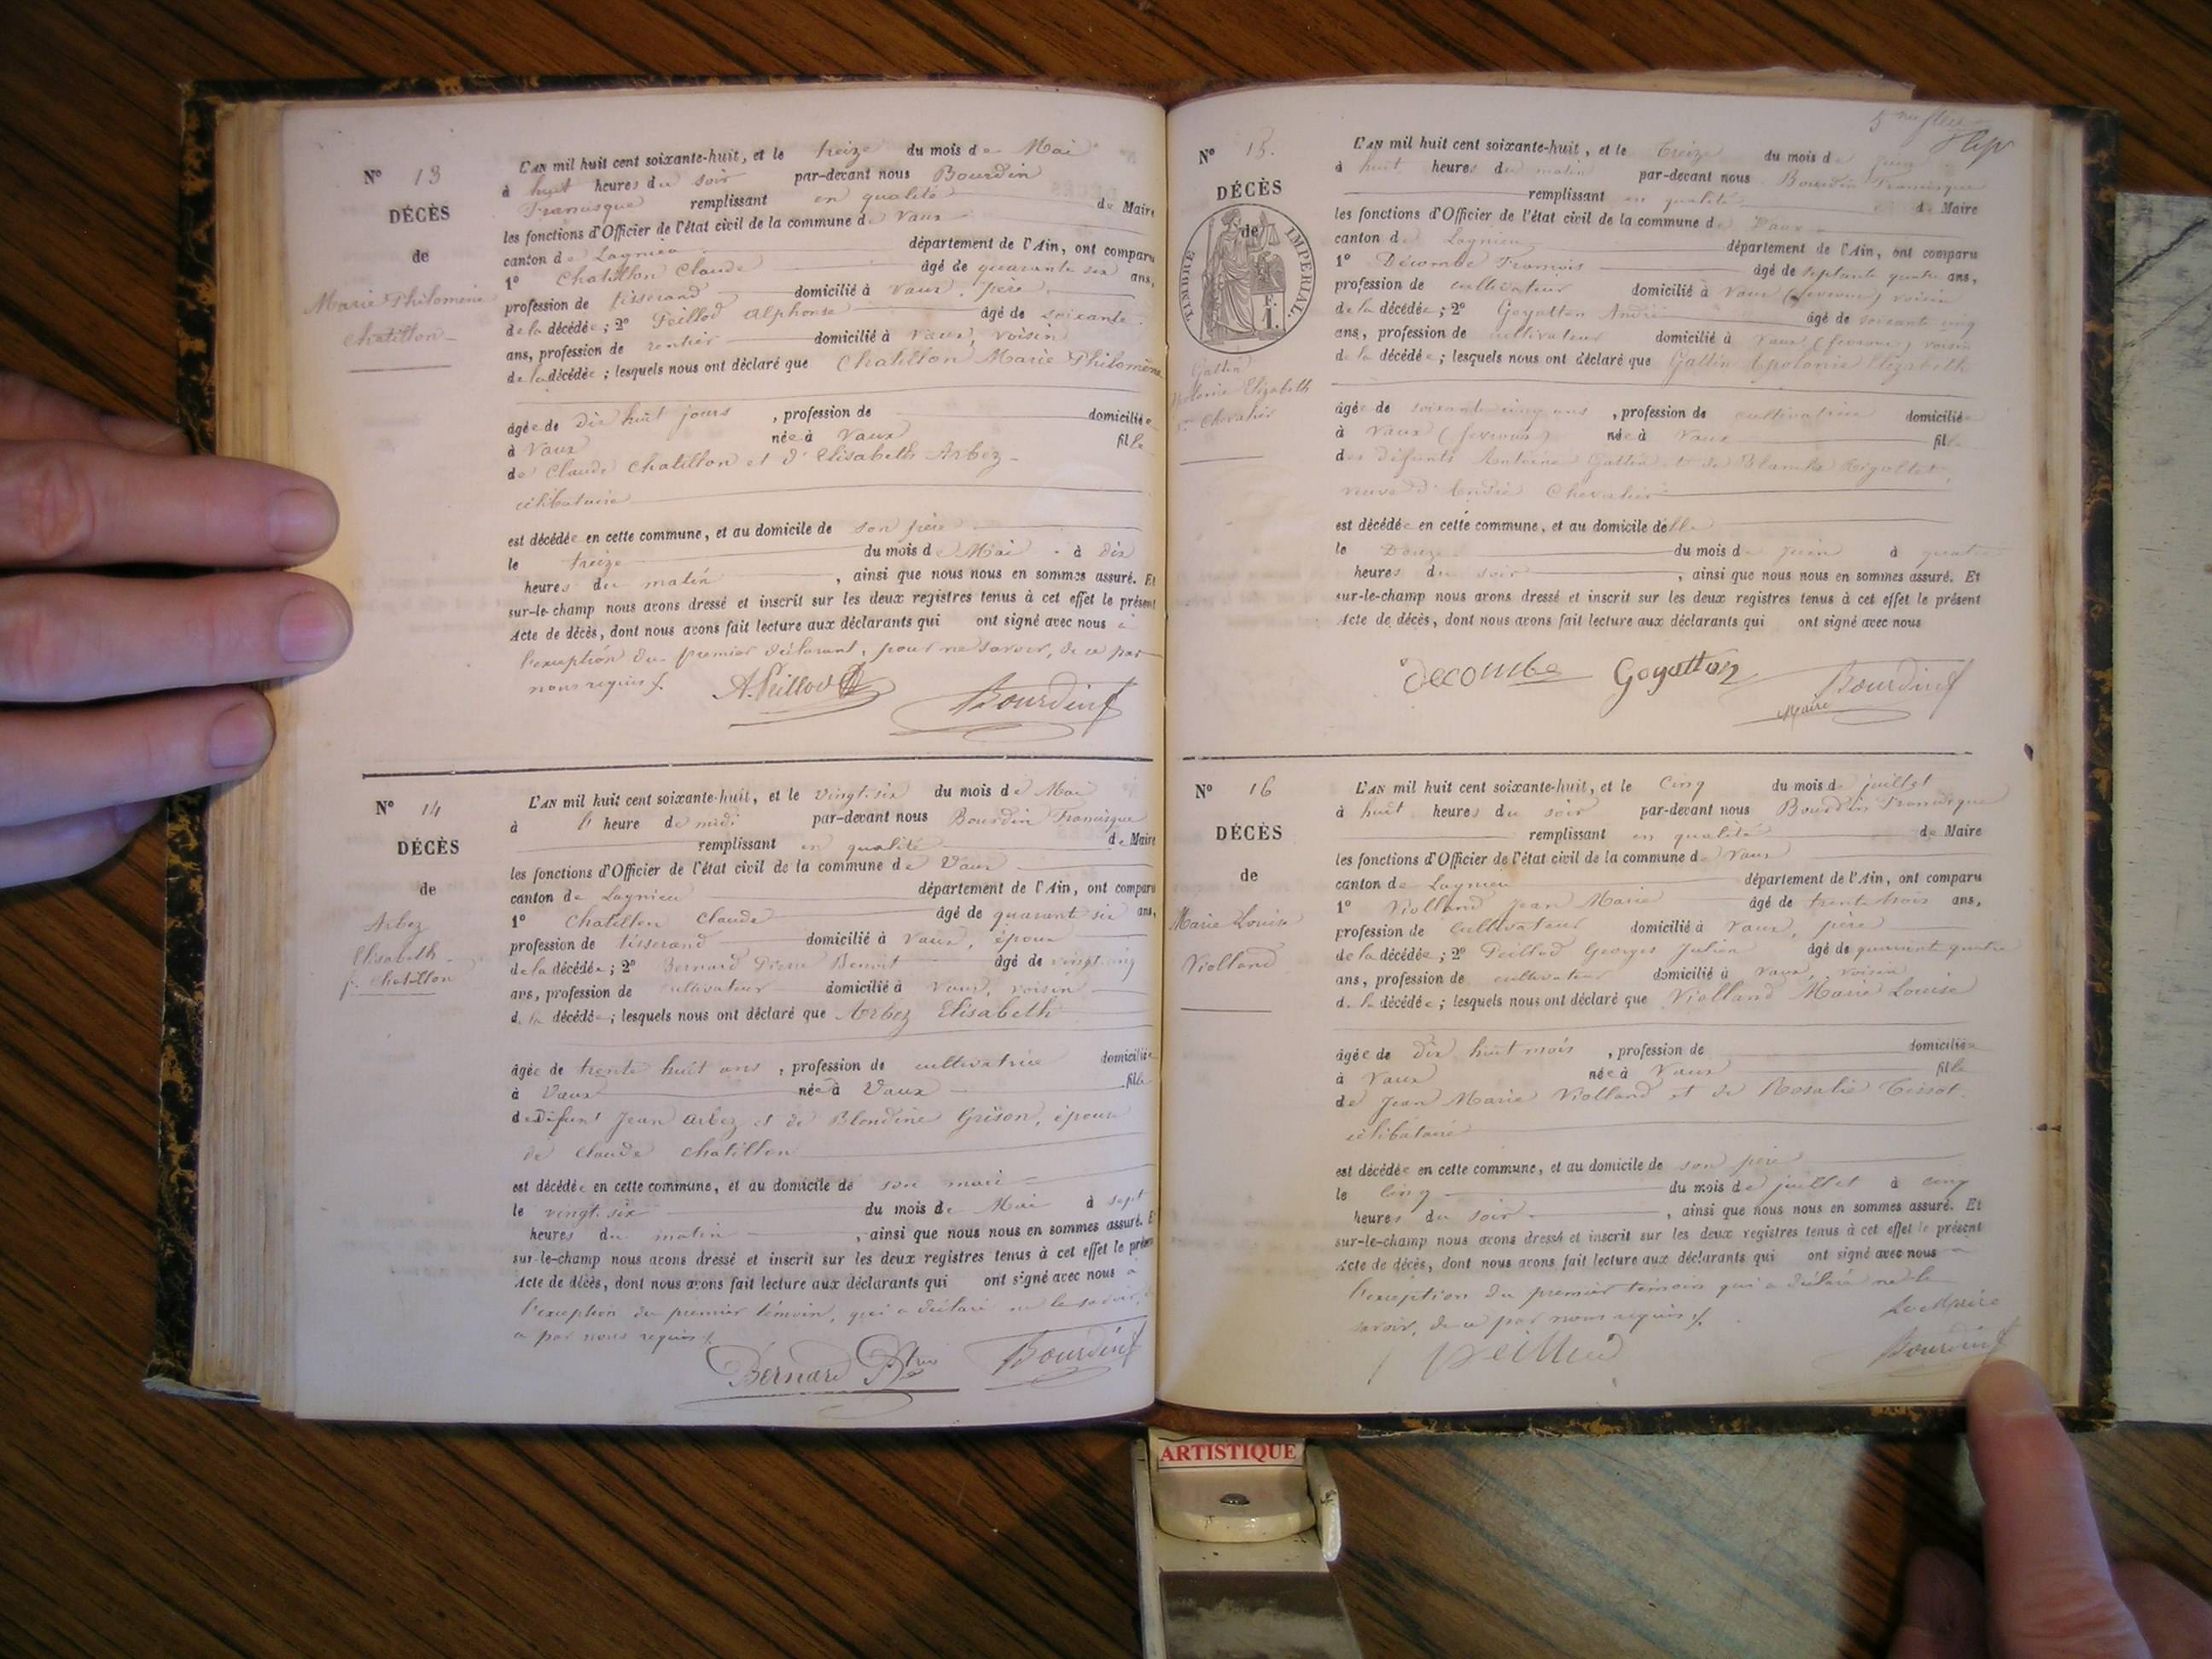 Nº 13
DÉCÈS
de
Marie Philomène
Chatillon
L'AN mil huit cent soixante-huit, et le treize du mois de Mai
à huit heures du soir par-devant nous Bourdin
Francisque remplissant en qualité de Maire
les fonctions d'Officier de l'état civil de la commune de Vaux
canton de Lagnieu département de l'Ain, ont comparu
1º Chatillon Claude âgé de quarante six ans,
profession de tisserand domicilié à Vaux, père
de la décédée ; 2º Peillod Alphonse âgé de soixante
ans, profession de rentier domicilié à Vaux, voisin
de la décédée ; lesquels nous ont déclaré que Chatillon Marie Philomène
âgée de dix huit jours , profession de domiciliée
à Vaux née à Vaux fille
de Claude Chatillon et d'Elisabeth Arbez
célibataire
est décédée en cette commune, et au domicile de son père
le treize du mois de Mai à dix
heures du matin , ainsi que nous nous en sommes assuré. Et
sur-le-champ nous avons dressé et inscrit sur les deux registres tenus à cet effet le présent
Acte de décès, dont nous avons fait lecture aux déclarants qui ont signé avec nous à
l'exception du premier déclarant, pour ne savoir, de ce par
nous requis
A. Peillod Bourdin f
Nº 14
DÉCÈS
de
Arbez
Elisabeth
f. Chatillon
L'AN mil huit cent soixante-huit, et le vingt-six du mois de Mai
à l' heure de midi par-devant nous Bourdin Francisque
remplissant en qualité de Maire
les fonctions d'Officier de l'état civil de la commune de Vaux
canton de Lagnieu département de l'Ain, ont comparu
1º Chatillon Claude âgé de quarante six ans,
profession de tisserand domicilié à Vaux, époux
de la décédée ; 2º Bernard Pierre Benoit âgé de vingt cinq
ans, profession de cultivateur domicilié à Vaux, voisin
de la décédée ; lesquels nous ont déclaré que Arbez Elisabeth
âgée de trente huit ans , profession de cultivatrice domiciliée
à Vaux née à Vaux fille
de Défunt Jean Arbez et de Blondine Grison, épouse
de Claude Chatillon
est décédée en cette commune, et au domicile de son mari
le vingt-six du mois de Mai à sept
heures du matin , ainsi que nous nous en sommes assuré. E
sur-le-champ nous avons dressé et inscrit sur les deux registres tenus à cet effet le présen
Acte de décès, dont nous avons fait lecture aux déclarants qui ont signé avec nous à
l'exception du premier témoin, qui a déclaré ne le savoir, de
ce par nous requis
Bernard Bourdin f
Nº 15.
DÉCÈS
de
TIMBRE IMPERIAL.
F.
1.
Gallin
Apolonie Elizabeth
Chevalier
L'AN mil huit cent soixante-huit, et le treize du mois de juin
à huit heures du matin par-devant nous Bourdin Francisque
remplissant en qualité de Maire
les fonctions d'Officier de l'état civil de la commune de Vaux
canton de Lagnieu département de l'Ain, ont comparu
1º Décombe François âgé de septante quatre ans,
profession de cultivateur domicilié à Vaux (fevroux) voisin
de la décédée ; 2º Goyatton André âgé de soixante cinq
ans, profession de cultivateur domicilié à Vaux (fevroux) voisin
de la décédée ; lesquels nous ont déclaré que Gallin Apolonie Elizabeth
âgée de soixante cinq ans , profession de cultivatrice domiciliée
à Vaux (fevroux) née à Vaux fille
des défunts Antoine Gallin et de
veuve d'André Chevalier
est décédée en cette commune, et au domicile d'elle
le Douze du mois de juin à quatre
heures du soir , ainsi que nous nous en sommes assuré. Et
sur-le-champ nous avons dressé et inscrit sur les deux registres tenus à cet effet le présent
Acte de décès, dont nous avons fait lecture aux déclarants qui ont signé avec nous
decombe Goyatton Bourdin f
Maire
Nº 16
DÉCÈS
de
Marie Louise
Violland
L'AN mil huit cent soixante-huit, et le Cinq du mois de juillet
à huit heures du soir par-devant nous Bourdin Francisque
remplissant en qualité de Maire
les fonctions d'Officier de l'état civil de la commune de Vaux
canton de Lagnieu département de l'Ain, ont comparu
1º Violland Jean Marie âgé de trente trois ans,
profession de Cultivateur domicilié à Vaux, père
de la décédée ; 2º Peillod Georges Julien âgé de quarante quatre
ans, profession de cultivateur domicilié à Vaux, voisin
de la décédée ; lesquels nous ont déclaré que Violland Marie Louise
âgée de dix huit mois , profession de domiciliée
à Vaux née à Vaux fille
de Jean Marie Violland et de Rosalie Tissot
célibataire
est décédée en cette commune, et au domicile de son père
le Cinq du mois de juillet à cinq
heures du soir , ainsi que nous nous en sommes assuré. Et
sur-le-champ nous avons dressé et inscrit sur les deux registres tenus à cet effet le présent
Acte de décès, dont nous avons fait lecture aux déclarants qui ont signé avec nous à
l'exception du premier témoin qui a déclaré ne le
savoir, de ce par nous requis
Le Maire
Peillod Bourdin f
ARTISTIQUE